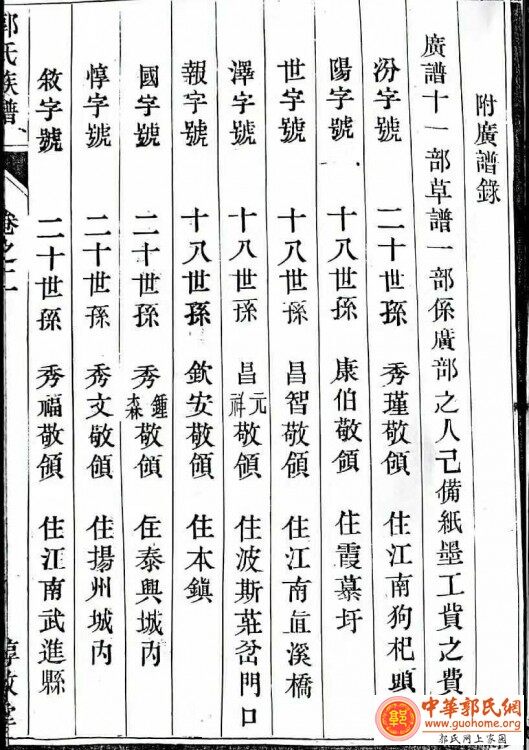 附廣譜錄
廣譜十一部草譜一部係廣部之人己備紙墨工貲之費
汾字號 二十世孫 秀瑾敬領 住江南狗杞頭
陽字號 十八世孫 康伯敬領 住霞慕圩
世字號 十八世孫 昌智敬領 住江南直溪橋
澤字號 十八世孫 昌元祥敬領 住波斯莊岔門口
報字號 十八世孫 欽安敬領 住本鎮
國字號 二十世孫 秀鍾森敬領 住泰興城內
惇字號 二十世孫 秀文敬領 住揚州城內
敘字號 二十世孫 秀福敬領 住江南武進縣
郭氏族譜 卷之二 惇敘堂
中華郭氏網
www.guohome.org
郭氏网上家园